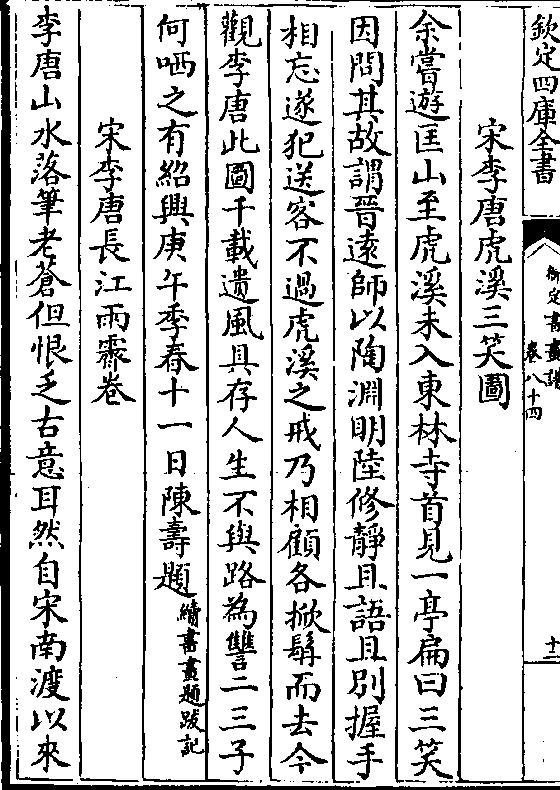 欽定四庫全書
御定書畫譜
卷八十四
十二
宋李唐虎溪三笑圖
余嘗遊匡山至虎溪未入東林寺首見一亭扁曰三笑
因問其故謂晉遠師以陶淵明陸修靜且語且別握手
相忘遂犯送客不過虎溪之戒乃相顧各掀髯而去今
觀李唐此圖千載遺風具存人生不與路為讐二三子
何哂之有紹興庚午季春十一日陳壽題續書畫題跋記
宋李唐長江雨霽卷
李唐山水落筆老蒼但恨乏古意耳然自宋南渡以來